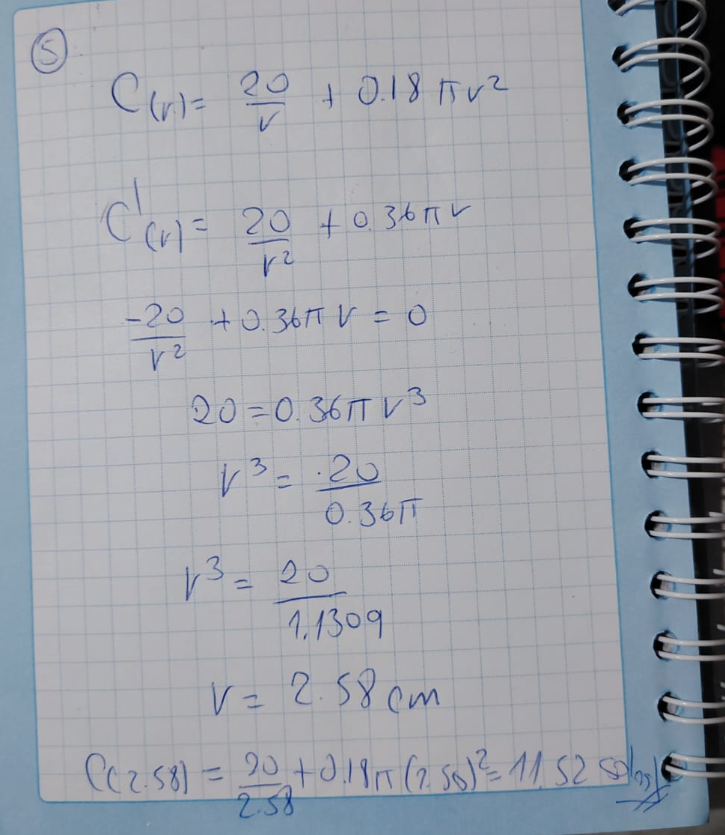 5
C(r) = 20/r + 0.18 πr²
C'(r) = 20/r² + 0.36πr
-20/r² + 0.36π r = 0
20 = 0.36π r³
r³ = 20/0.36π
r³ = 20/1.1309
r = 2.58 cm
C(2.58) = 20/2.58 + 0.18π(2.58)² = 11.52